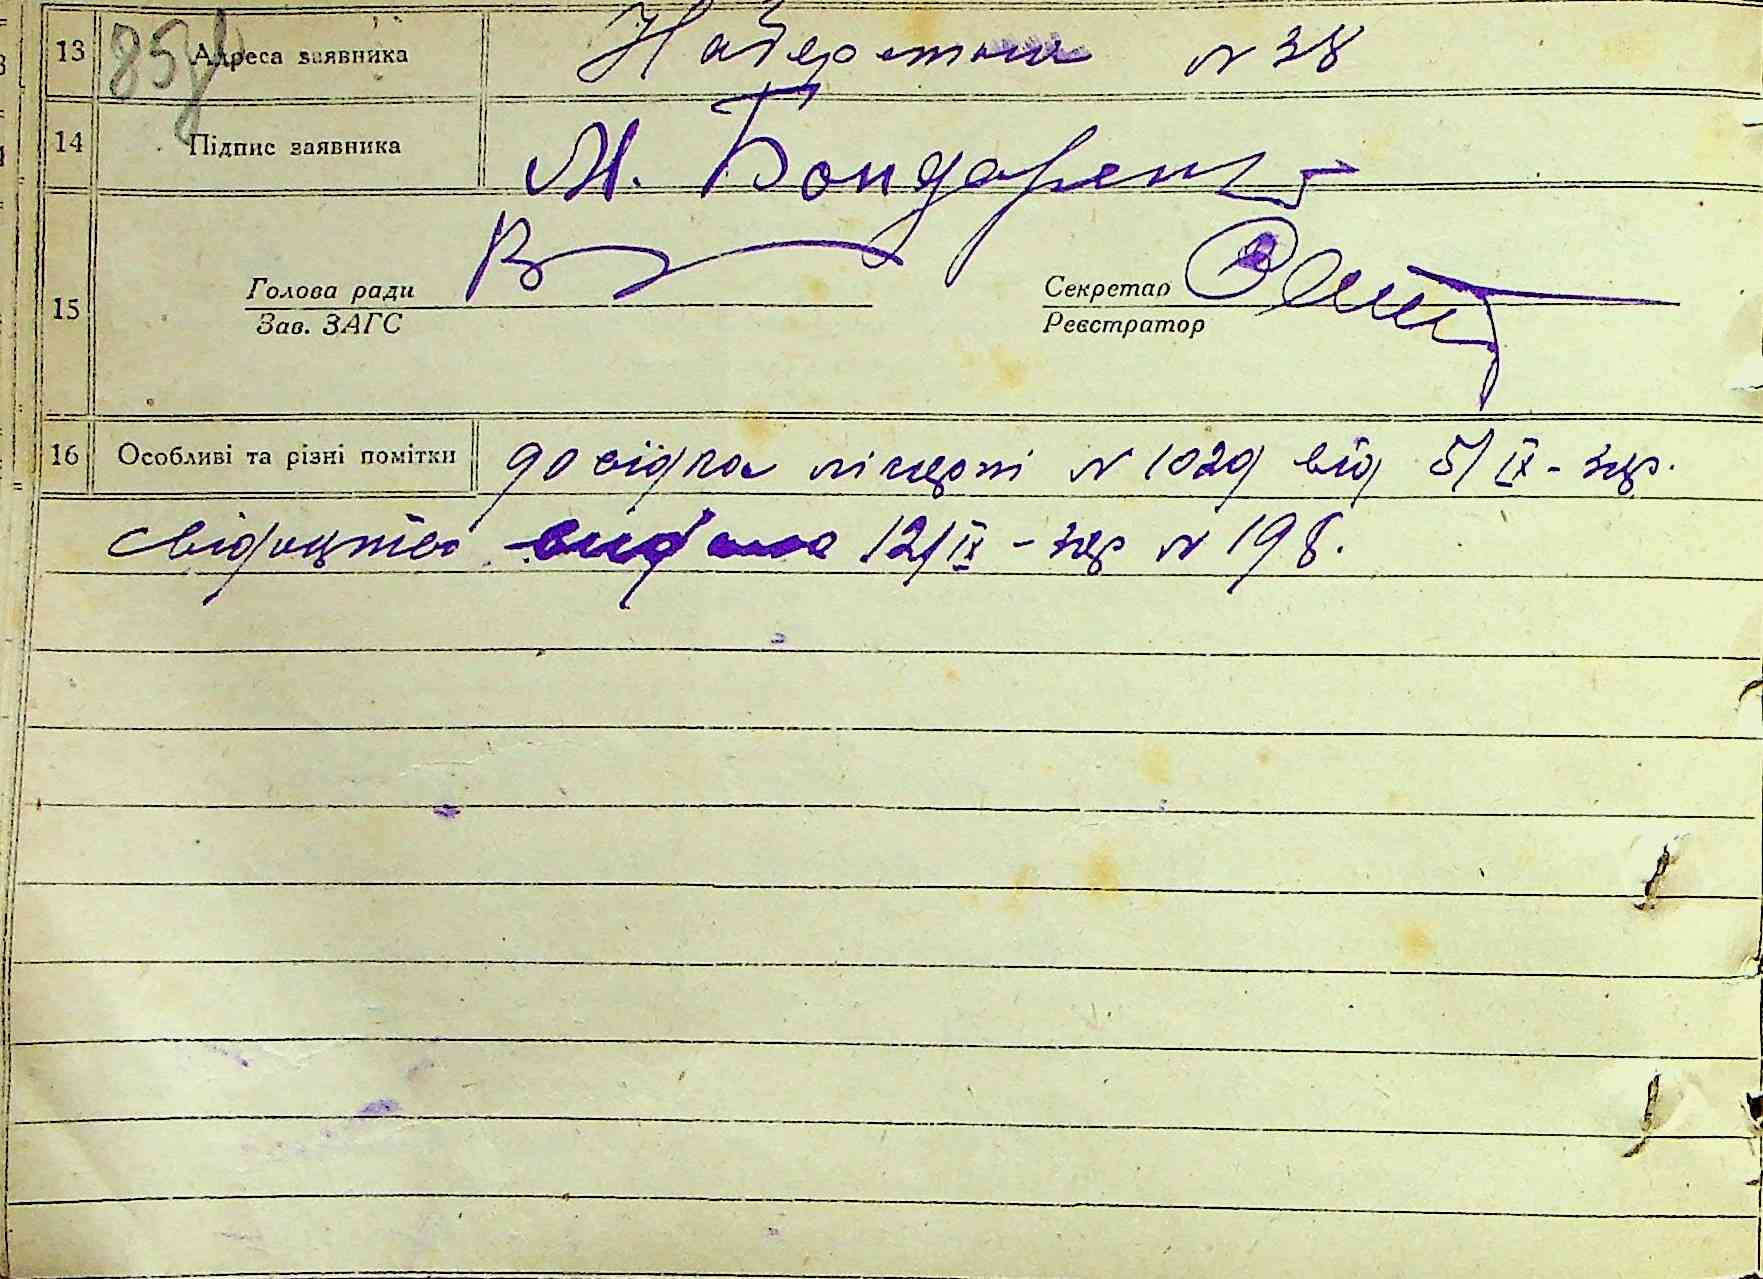 13 85 Адреса заявника Набережна N 38
14 Підпис заявника М. Бондаренко
15 Голова ради Секретар
Зав. ЗАГС Реєстратор
16 Особливі та різні помітки довідка лікарні N 1029 від 5/IX-
свідоцтво видано 12/IX- N 198.